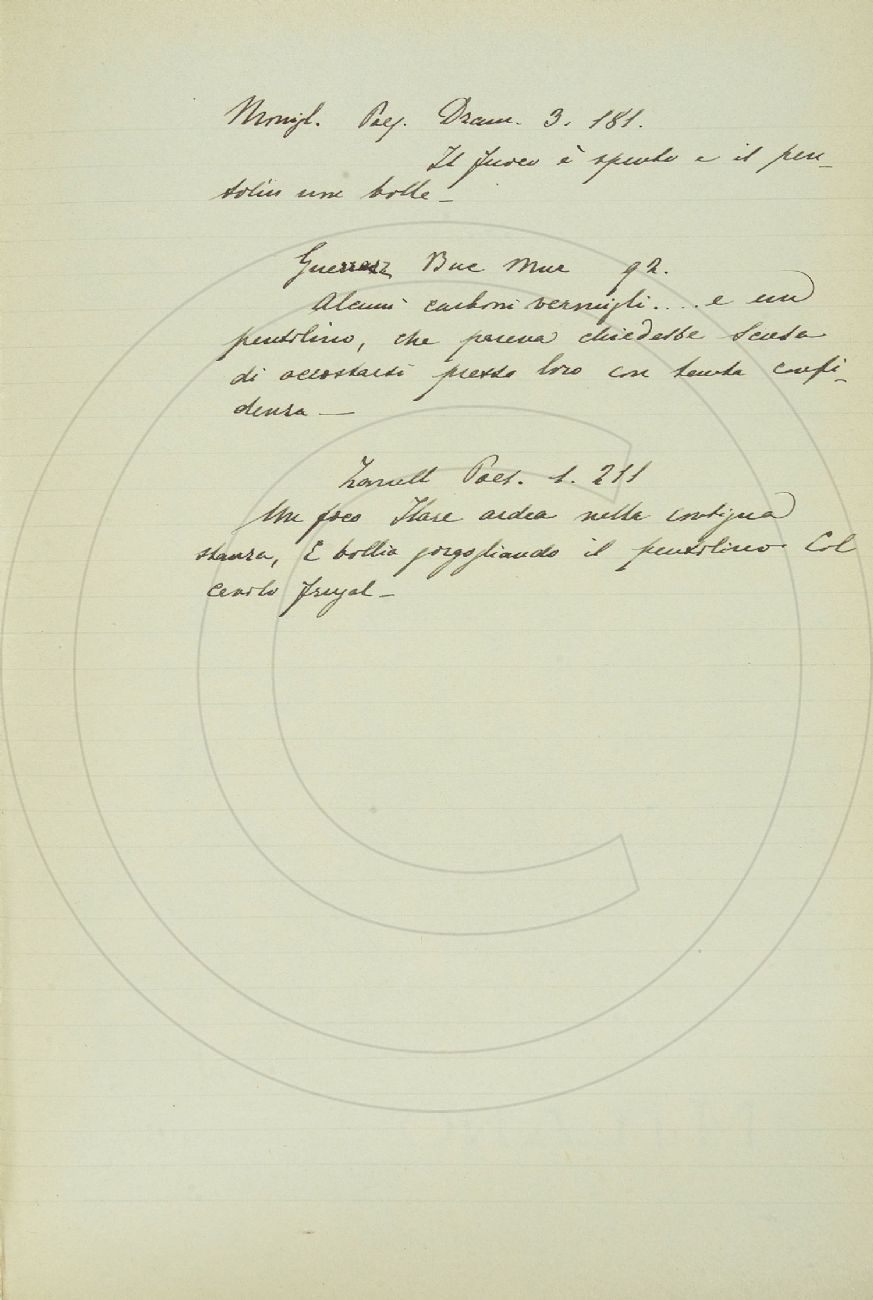 Monigl. Poes. Dram. 3. 181.
Il fuoco è spento e il pen-
tolin non bolle -
Guerrazz Buc Mur 92.
Alcuni carboni vermigli.... e un
pentolino, che pareva chiedesse scusa
di accostarsi presso loro con tanta confi-
denza —
Poes. 1. 211
Un foco stare ardea nella contigua
stanza, E bollia gorgogliando il pentolino Col
cavolo